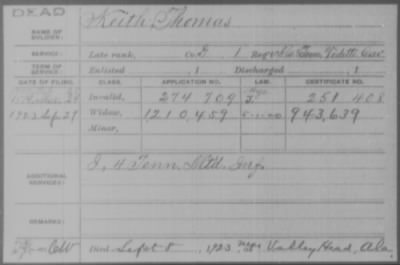 DEAD
Keith, Thomas
NAME OF SOLDIER:
SERVICE: Late rank, Co. D, 1 Reg't Tenn. Vidette Cav.
TERM OF SERVICE: Enlisted , 1 Discharged , 1
DATE OF FILING. CLASS. APPLICATION NO. LAW. CERTIFICATE NO.
Invalid, 274 709 251 408
1923 Sep 29 Widow, 1210,459 943,639
Minor,
ADDITIONAL SERVICES: I, 4 Tenn. Mtd. Inf.
REMARKS:
Died Sept 8, 1923 at Valley Head, Ala.